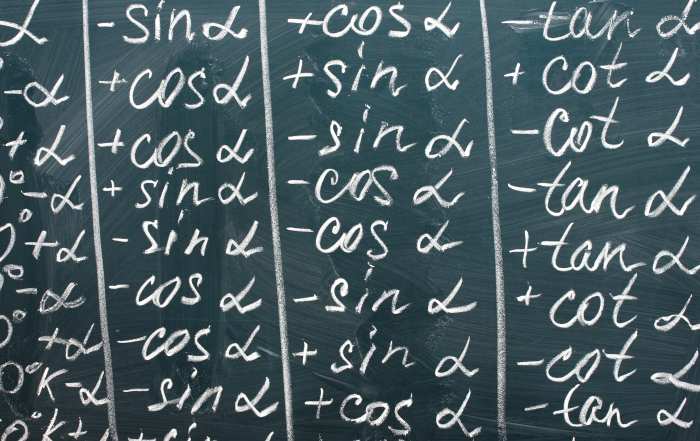 α -sin α +cos α -tan α
-α +cos α +sin α +cot α
+α +cos α -sin α -cot α
°-α +sin α -cos α -tan α
0°+α -sin α -cos α +tan α
°-α -cos α -sin α +cot α
0°+α -cos α +sin α -cot α
0°K-α -sin α +cos α -tan α
0°K+ +sin